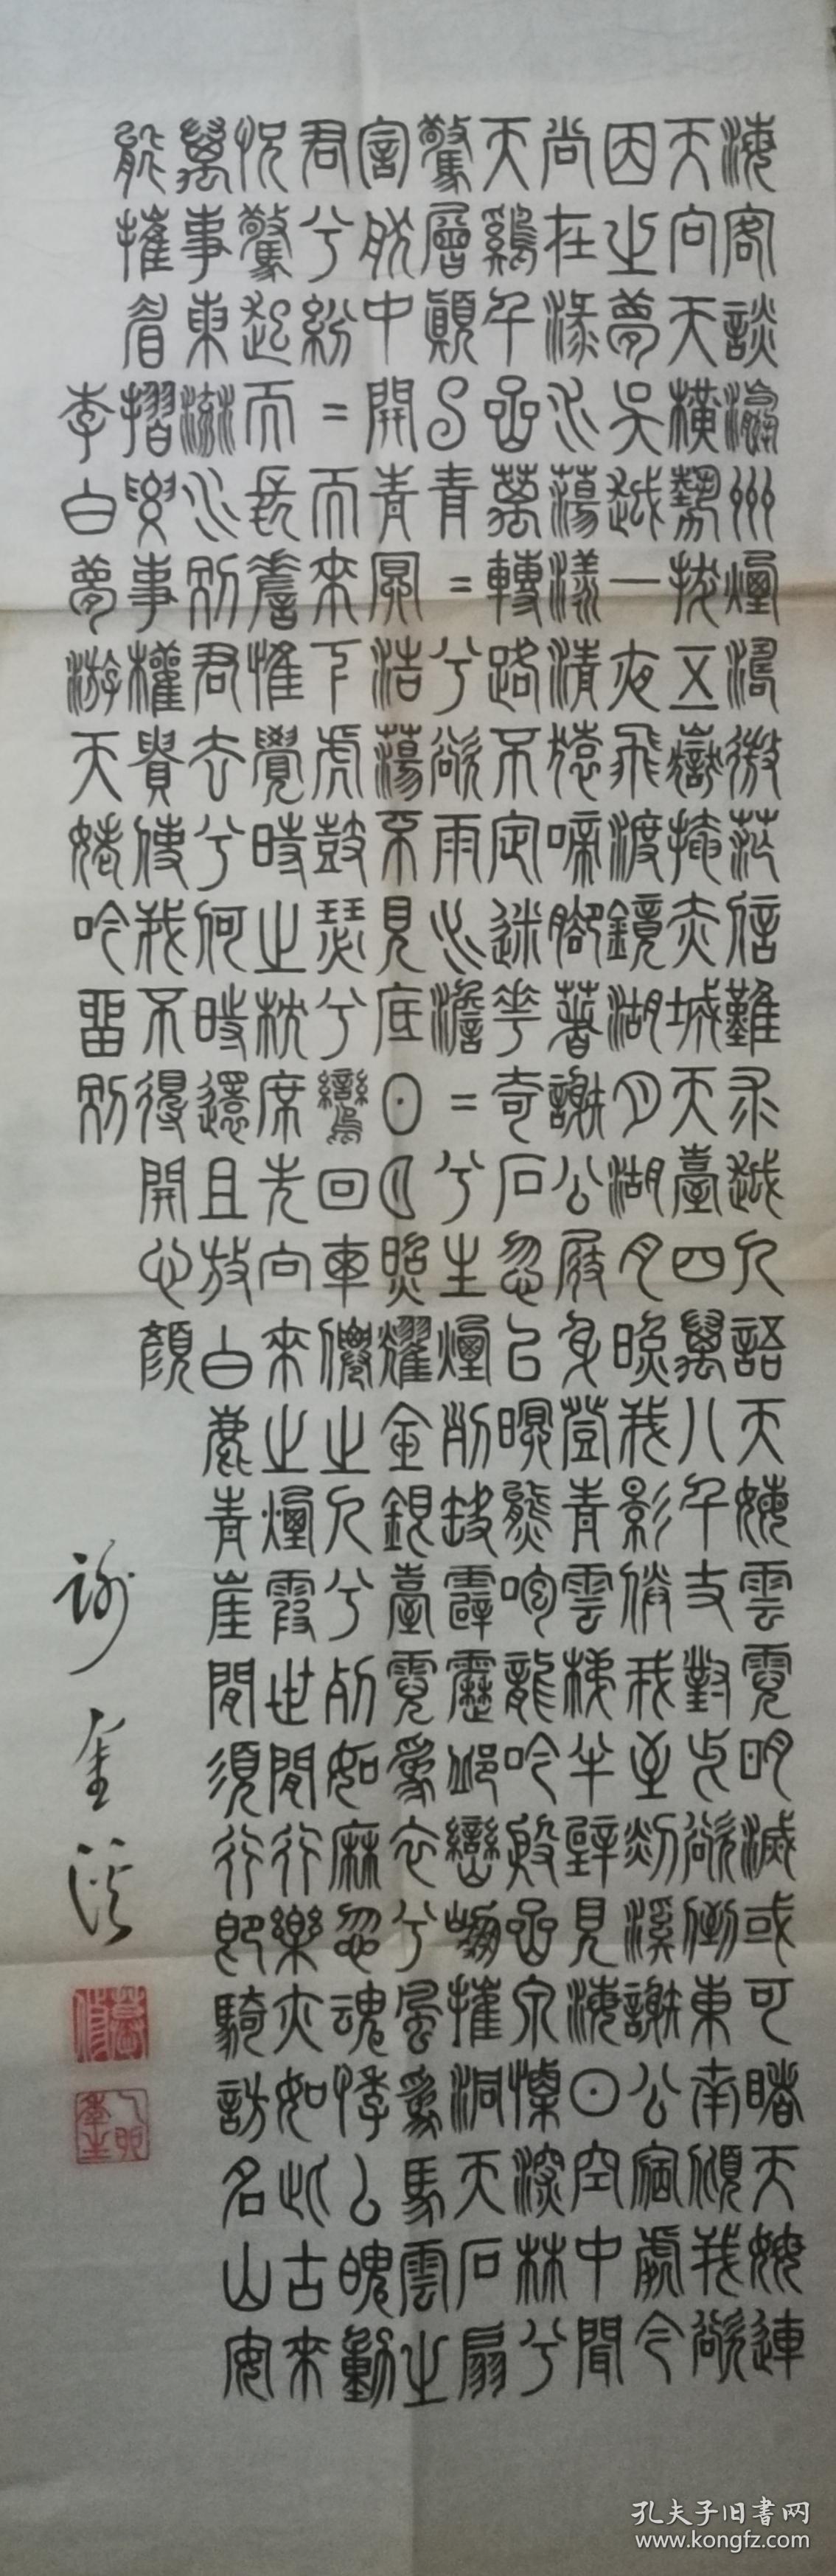 海客談瀛州煙濤微茫信難求越人語天姥雲霓明滅或可睹天姥連
天向天橫勢拔五嶽掩赤城天臺四萬八千丈對此欲倒東南傾我欲
因之夢吳越一夜飛渡鏡湖月湖月照我影送我至剡溪謝公宿處今
尚在淥水蕩漾清猿啼腳著謝公屐身登青雲梯半壁見海日空中聞
天雞千嵒萬轉路不定迷花奇石忽已暝熊咆龍吟殷嵒泉慄深林兮
驚層顛云青=兮欲雨水澹=兮生煙列缺霹靂邱巒崩摧洞天石扇
訇然中開青冥浩蕩不見底日月照耀金銀臺霓為衣兮風為馬雲之
君兮紛=而來下虎鼓瑟兮鸞回車仙之人兮列如麻忽魂悸以魄動
怳驚起而長嗟惟覺時之枕席失向來之煙霞世間行樂亦如此古來
萬事東流水別君去兮何時還且放白鹿青崖間須行即騎訪名山安
能摧眉摺腰事權貴使我不得開心顏
李白夢游天姥吟留別
孔夫子旧書网
www.kongfz.com